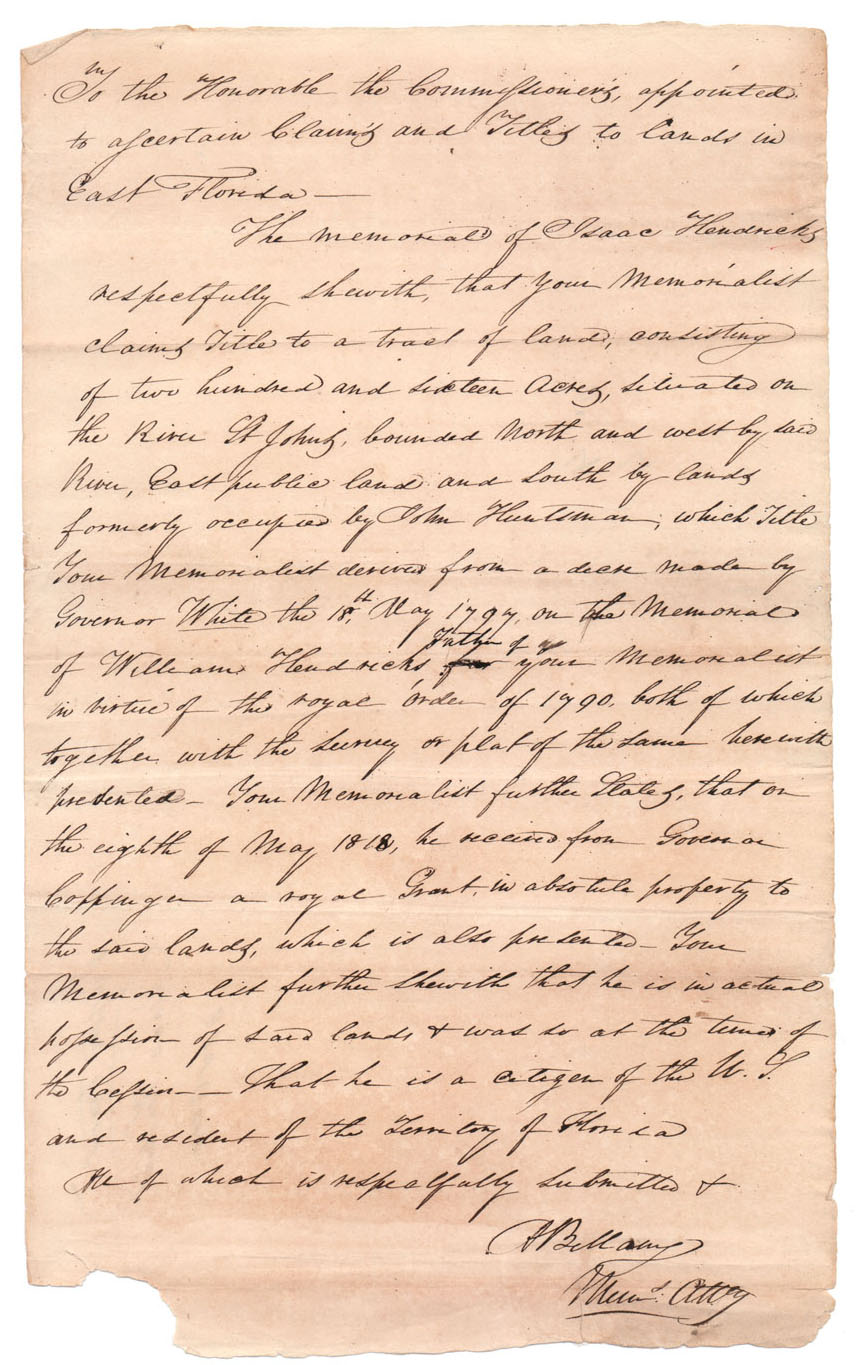 To the Honorable the Commissioners, appointed
to ascertain Claims and Titles to lands in
East Florida —
The memorial of Isaac Hendricks
respectfully shewith, that your Memorialist
claims Title to a tract of land, consisting
of two hundred and sixteen Acres, situated on
the River St Johns, bounded North and west by said
River, East public land and South by lands
formerly occupied by John Huntsman, which Title
Your Memorialist derived from a decre made by
Governor White the 18th May 1797, on the Memorial
Father of
of William Hendricks your Memorialist
in virtue of the royal order of 1790. both of which
together with the survey or plat of the same herewith
presented – Your Memorialist further States, that on
the eighth of May 1818, he received from Governor
Coppinger a royal Grant in absolute property to
the said lands, which is also presented – Your
Memorialist further shewith that he is in actual
possession of said lands & was so at the time of
the Cession — That he is a citizen of the U. S.
and resident of the Territory of Florida
All of which is respectfully submitted &
A Bellamy
Atty